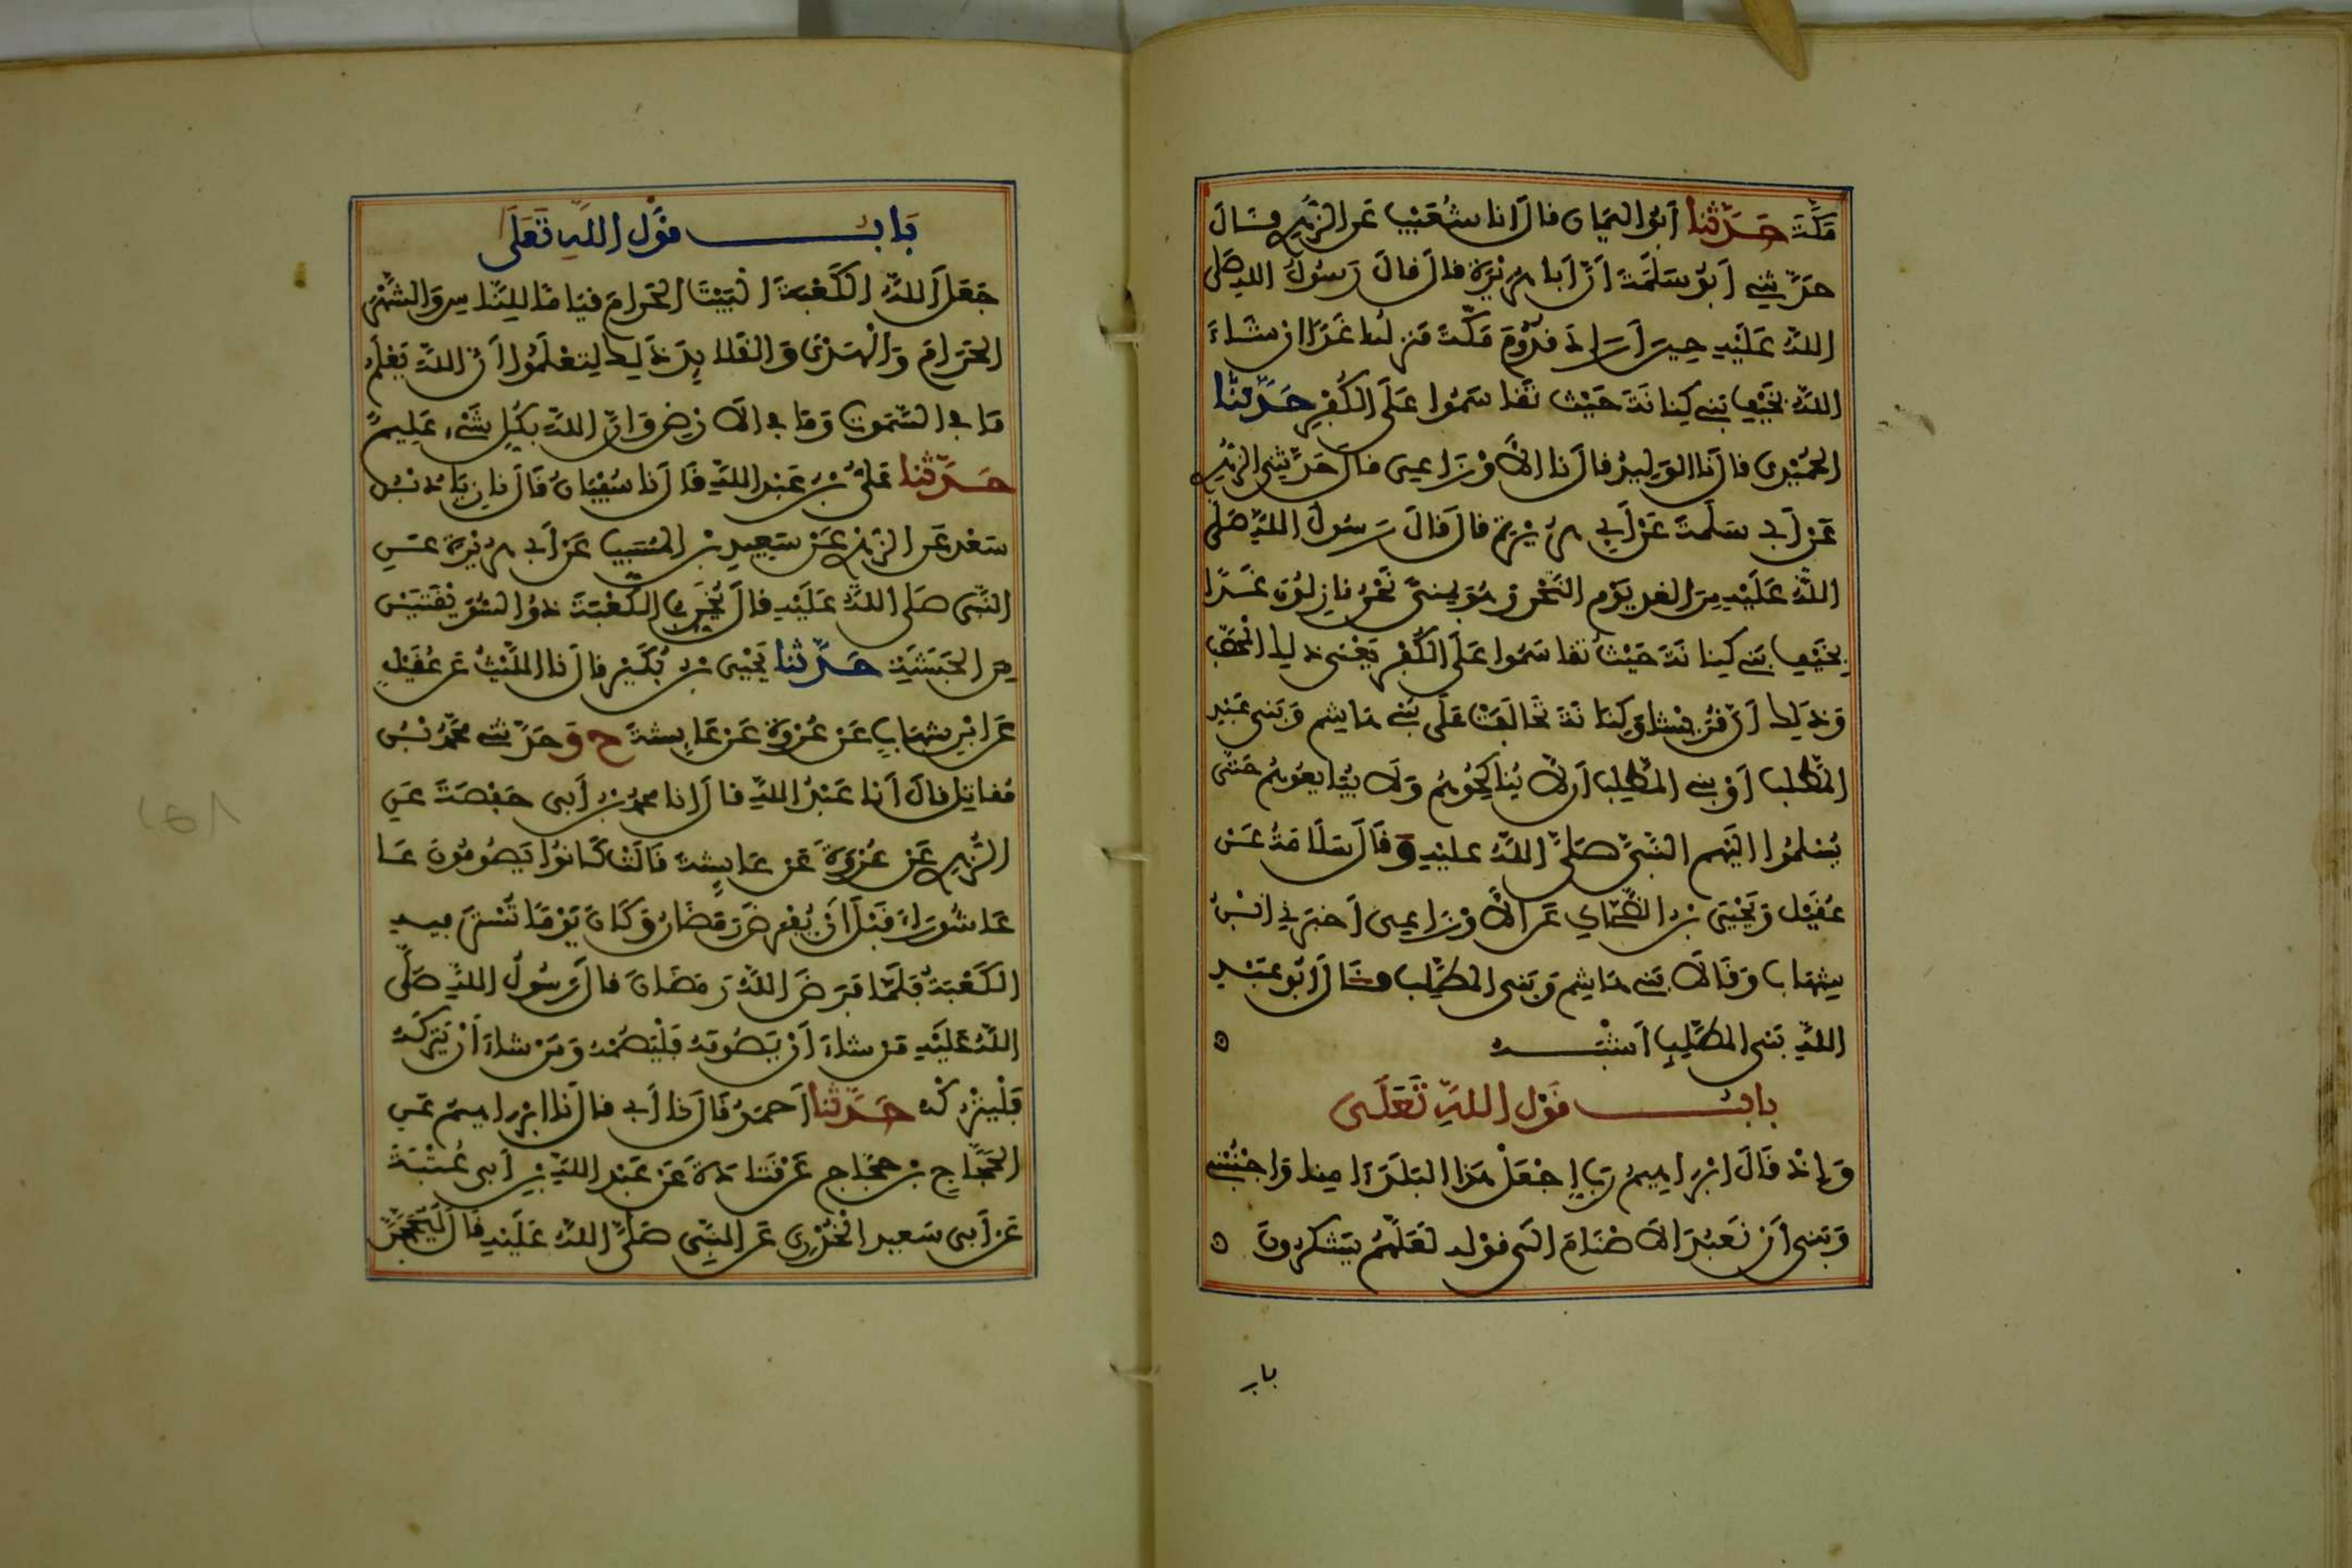 مَكَّةَ حَدَّثَنَا أَبُو الْيَمَانِ قَالَ أَنَا شُعَيْبٌ عَنِ الزُّهْرِيِّ وَقَالَ
حَدَّثَنِي أَبُو سَلَمَةَ أَنَّ أَبَا هُرَيْرَةَ قَالَ قَالَ رَسُولُ اللَّهِ صَلَّى
اللَّهُ عَلَيْهِ حِينَ أَرَادَ قُدُومَ مَكَّةَ مَنْزِلُنَا غَدًا إِنْ شَاءَ
اللَّهُ بِخَيْفِ بَنِي كِنَانَةَ حَيْثُ تَقَاسَمُوا عَلَى الْكُفْرِ حَدَّثَنَا
الْحُمَيْدِي قَالَ نَا الْوَلِيدُ قَالَ نَا الْأَوْزَاعِي قَالَ حَدَّثَنِي الزُّهْرِي
عَنْ أَبِي سَلَمَةَ عَنْ أَبِي هُرَيْرَةَ قَالَ قَالَ رَسُولُ اللَّهِ صَلَّى
اللَّهُ عَلَيْهِ مِنَ الْغَدِ يَوْمَ النَّحْرِ وَهُوَ بِمِنًى نَحْنُ نَازِلُونَ غَدًا
بِخَيْفِ بَنِي كِنَانَةَ حَيْثُ تَقَاسَمُوا عَلَى الْكُفْرِ يَعْنِي ذَلِكَ الْمُحَصَّبَ
وَذَلِكَ أَنَّ قُرَيْشًا وَكِنَانَةَ تَحَالَفَتْ عَلَى بَنِي هَاشِمٍ وَبَنِي عَبْدِ
الْمُطَّلِبِ أَوْ بَنِي الْمُطَّلِبِ أَنْ لَا يُنَاكِحُوهُمْ وَلَا يُبَايِعُوهُمْ حَتَّى
يُسْلِمُوا إِلَيْهِمُ النَّبِيَّ صَلَّى اللَّهُ عَلَيْهِ وَقَالَ سَلَامَةُ عَنْ
عُقَيْلٍ وَيَحْيَى بْنُ الضَّحَّاكِ عَنِ الْأَوْزَاعِي أَخْبَرَنِي ابْنُ
شِهَابٍ وَقَالَا بَنِي هَاشِمٍ وَبَنِي الْمُطَّلِبِ وَقَالَ أَبُو عَبْدِ
اللَّهِ بَنِي الْمُطَّلِبِ أَشْبَهُ
بَابُ قَوْلِ اللَّهِ تَعَلَى
وَإِذْ قَالَ إِبْرَاهِيمُ رَبِّ اجْعَلْ هَذَا الْبَلَدَ آمِنًا وَاجْنُبْنِي
وَبَنِيَّ أَنْ نَعْبُدَ الْأَصْنَامَ إِلَى قَوْلِهِ لَعَلَّهُمْ يَشْكُرُونَ
باب
بَابُ قَوْلِ اللَّهِ تَعَلَى
جَعَلَ اللَّهُ الْكَعْبَةَ الْبَيْتَ الْحَرَامَ قِيَامًا لِلنَّاسِ وَالشَّهْرَ
الْحَرَامَ وَالْهَدْيَ وَالْقَلَائِدَ ذَلِكَ لِتَعْلَمُوا أَنَّ اللَّهَ يَعْلَمُ
مَا فِي السَّمَوَتِ وَمَا فِي الْأَرْضِ وَأَنَّ اللَّهَ بِكُلِّ شَيْءٍ عَلِيمٌ
حَدَّثَنَا عَلِيُّ بْنُ عَبْدِ اللَّهِ قَالَ نَا سُفْيَانُ قَالَ نَا زِيَادُ بْنُ
سَعْدٍ عَنِ الزُّهْرِي عَنْ سَعِيدِ بْنِ الْمُسَيَّبِ عَنْ أَبِي هُرَيْرَةَ عَنِ
النَّبِي صَلَّى اللَّهُ عَلَيْهِ قَالَ يُخَرِّبُ الْكَعْبَةَ ذُو السُّوَيْقَتَيْنِ
مِنَ الْحَبَشَةِ حَدَّثَنَا يَحْيَى بْنُ بُكَيْرٍ قَالَ نَا اللَّيْثُ عَنْ عُقَيْلٍ
عَنِ ابْنِ شِهَابٍ عَنْ عُرْوَةَ عَنْ عَائِشَةَ ح وَحَدَّثَنِي مُحَمَّدُ بْنُ
مُقَاتِلٍ قَالَ أَنَا عَبْدُ اللَّهِ قَالَ أَنَا مُحَمَّدُ بْنُ أَبِي حَفْصَةَ عَنِ
الزُّهْرِي عَنْ عُرْوَةَ عَنْ عَائِشَةَ قَالَتْ كَانُوا يَصُومُونَ عَا
عَاشُورَاءَ قَبْلَ أَنْ يُفْرَضَ رَمَضَانُ وَكَانَ يَوْمًا تُسْتَرُ فِيهِ
الْكَعْبَةُ فَلَمَّا فَرَضَ اللَّهُ رَمَضَانَ قَالَ رَسُولُ اللَّهِ صَلَّى
اللَّهُ عَلَيْهِ مَنْ شَاءَ أَنْ يَصُومَهُ فَلْيَصُمْهُ وَمَنْ شَاءَ أَنْ يَتْرُكَهُ
فَلْيَتْرُكْهُ حَدَّثَنَا أَحْمَدُ قَالَ نَا أَبِي قَالَ نَا إِبْرَاهِيمُ عَنِ
الْحَجَّاجِ بْنِ حَجَّاجٍ عَنْ قَتَادَةَ عَنْ عَبْدِ اللَّهِ بْنِ أَبِي عُتْبَةَ
عَنْ أَبِي سَعِيدٍ الْخُدْرِي عَنِ النَّبِي صَلَّى اللَّهُ عَلَيْهِ قَالَ لَيُحَجَّنَّ